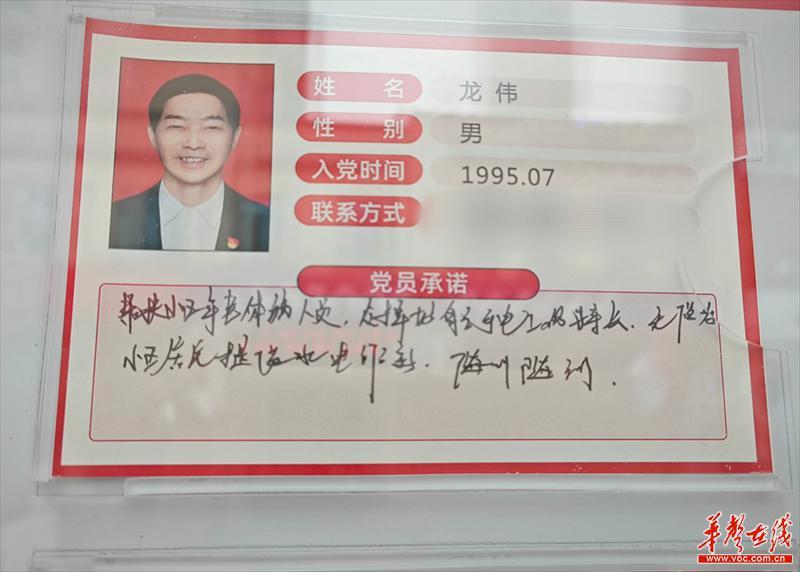 姓 名 龙 伟
性 别 男
入党时间 1995.07
联系方式
党员承诺
帮扶小区年老体弱人员,发挥自身电工的特长,无偿为
小区居民提供水电维修,随叫随到.
华声在线
www.voc.com.cn